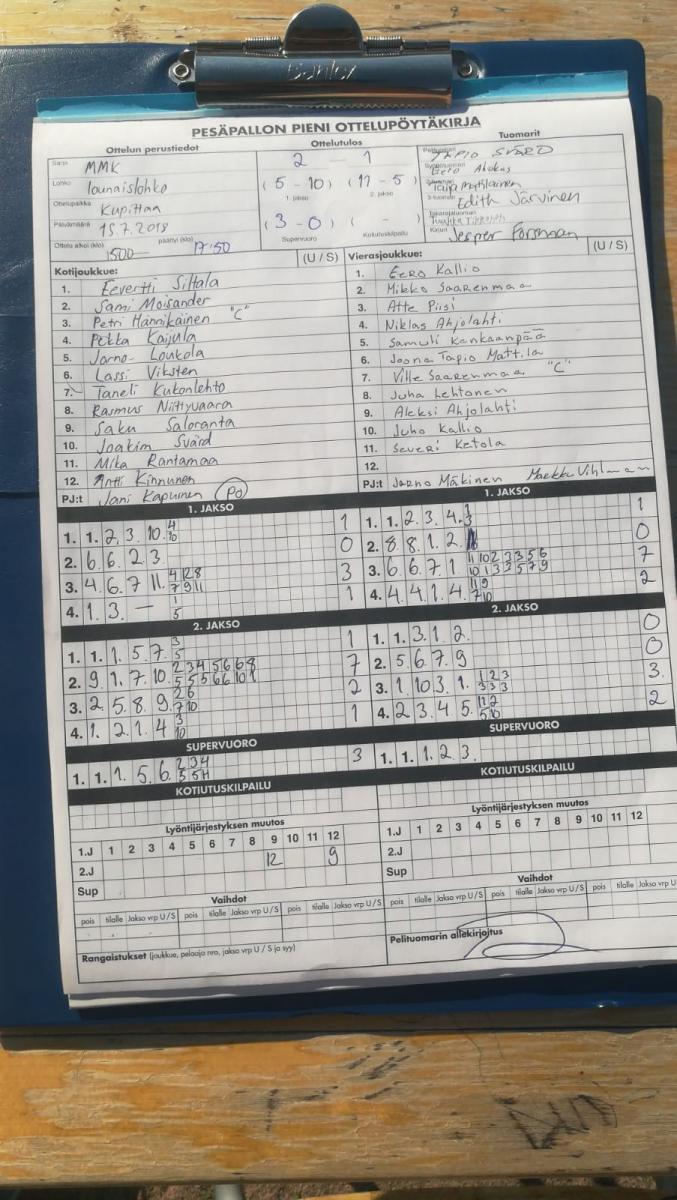 PESÄPALLON PIENI OTTELUPÖYTÄKIRJA
Ottelun perustiedot
Sarja MMK
Lohko lounaislohko
Ottelupaikka Kupittaa
Päivämäärä 15.7.2018
Ottelu alkoi (klo) 1500 päättyi (klo) 17:50
Ottelutulos
2 - 1
(5 - 10) (17 - 5)
1. jakso 2. jakso
(3 - 0) ( - )
Supervuoro Kotiutuskilpailu
Tuomarit
TAPIO SVÄRD
Eero
Edith Järvinen
Jesper Forsman
Kotijoukkue: (U / S)
1. Eevertti Siltala
2. Sami Moisander
3. Petri Hännikäinen "C"
4. Pekka Kaijula
5. Jarno Loukola
6. Lassi Viksten
7. Taneli Kukonlehto
8. Rasmus Niityvaara
9. Saku Saloranta
10. Joakim Svärd
11. Mika Rantamaa
12. Antti Kinnunen
PJ:t Jani Kapuinen (Po)
Vierasjoukkue: (U / S)
1. Eero Kallio
2. Mikko Saarenmaa
3. Atte Piisi
4. Niklas Ahjolahti
5. Samuli Kankaanpää
6. Joona Tapio Mattila
7. Ville Saarenmaa "C"
8. Juha Lehtonen
9. Aleksi Ahjolahti
10. Juho Kallio
11. Severi Ketola
12.
PJ:t Jarno Mäkinen Markku Vihlman
1. JAKSO
1. 1. 2. 3. 10. 4 10 1
2. 6. 6. 2. 3. 0
3. 4. 6. 7 11. 4 2 8 7 9 11 3
4. 1. 3. — 1 5 1
1. JAKSO
1. 1. 2. 3. 4. 1 3 1
2. 8. 8. 1. 2. 0
3. 6. 6. 7. 1. 11 10 2 3 3 5 6 10 1 3 3 5 7 9 7
4. 4. 4. 1. 4. 11 9 7 10 2
2. JAKSO
1. 1. 1. 5. 7. 3 5 1
2. 9. 1. 7. 10. 2 3 4 5 6 6 8 5 5 5 6 6 10 1 7
3. 2. 5. 8. 9. 2 6 7 10 2
4. 1. 2. 1. 4 3 10 1
2. JAKSO
1. 1. 3. 1. 2. 0
2. 5. 6. 7. 9 0
3. 1. 10 3. 1. 1 2 3 3 3 3 3.
4. 2. 3. 4. 5. 11 2 5 10 2
SUPERVUORO
1. 1. 1. 5. 6. 2 3 4 3 5 11 3
SUPERVUORO
1. 1. 1. 2. 3.
KOTIUTUSKILPAILU
KOTIUTUSKILPAILU
Lyöntijärjestyksen muutos
1.J 1 2 3 4 5 6 7 8 9 10 11 12
2.J 12 9
Sup
Lyöntijärjestyksen muutos
1.J 1 2 3 4 5 6 7 8 9 10 11 12
2.J
Sup
Vaihdot
pois tilalle Jakso vrp U / S pois tilalle Jakso vrp U / S pois tilalle Jakso vrp U / S
Vaihdot
pois tilalle Jakso vrp U / S pois tilalle Jakso vrp U / S pois tilalle Jakso vrp U / S
Rangaistukset (joukkue, pelaaja nro, jakso vrp U / S ja syy)
Pelituomarin allekirjoitus